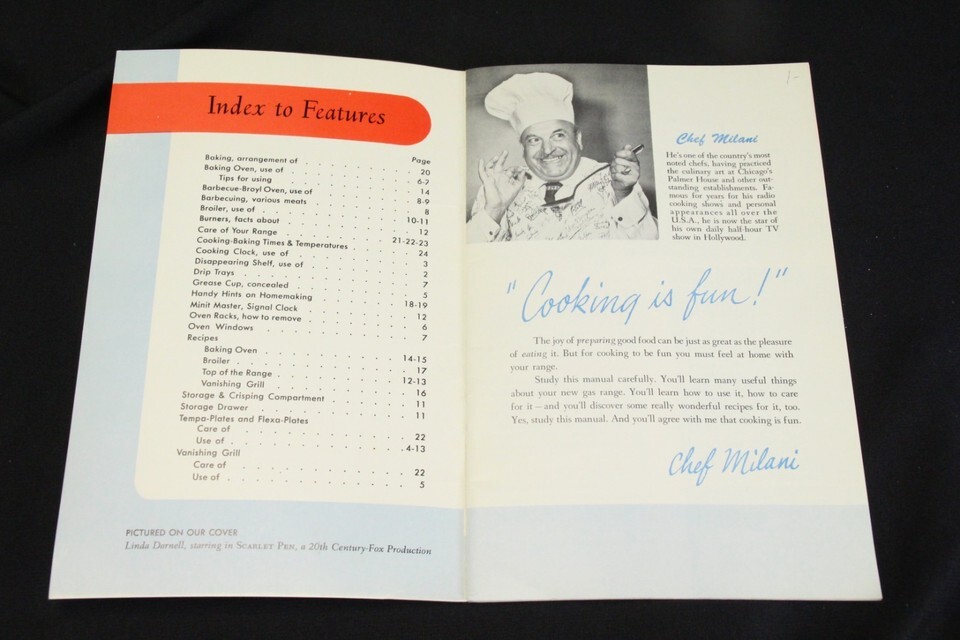 Index to Features
Page
Baking, arrangement of . . . . . . . . . . 20
Baking Oven, use of . . . . . . . . . . 6-7
Tips for using . . . . . . . . . . 14
Barbecue-Broyl Oven, use of . . . . . . . 8-9
Barbecuing, various meats . . . . . . . 8
Broiler, use of . . . . . . . . . . 10-11
Burners, facts about . . . . . . . . . . 12
Care of Your Range . . . . . . . . 21-22-23
Cooking-Baking Times & Temperatures . . . . 24
Cooking Clock, use of . . . . . . . . . . 3
Disappearing Shelf, use of . . . . . . . . 2
Drip Trays . . . . . . . . . . . . 7
Grease Cup, concealed . . . . . . . . . . 5
Handy Hints on Homemaking . . . . . . 18-19
Minit Master, Signal Clock . . . . . . . . 12
Oven Racks, how to remove . . . . . . . . 6
Oven Windows . . . . . . . . . . . . 7
Recipes
Baking Oven . . . . . . . . . . 14-15
Broiler . . . . . . . . . . . . 17
Top of the Range . . . . . . . . 12-13
Vanishing Grill . . . . . . . . . . 16
Storage & Crisping Compartment . . . . . . 11
Storage Drawer . . . . . . . . . . 11
Tempa-Plates and Flexa-Plates
Care of . . . . . . . . . . . . 22
Use of . . . . . . . . . . . . 4-13
Vanishing Grill
Care of . . . . . . . . . . . . 22
Use of . . . . . . . . . . . . 5
PICTURED ON OUR COVER
Linda Darnell, starring in SCARLET PEN, a 20th Century-Fox Production
1-
Chef Milani
He's one of the country's most
noted chefs, having practiced
the culinary art at Chicago's
Palmer House and other out-
standing establishments. Fa-
mous for years for his radio
cooking shows and personal
appearances all over the
U.S.A., he is now the star of
his own daily half-hour TV
show in Hollywood.
"Cooking is fun!"
The joy of preparing good food can be just as great as the pleasure
of eating it. But for cooking to be fun you must feel at home with
your range.
Study this manual carefully. You'll learn many useful things
about your new gas range. You'll learn how to use it, how to care
for it – and you'll discover some really wonderful recipes for it, too.
Yes, study this manual. And you'll agree with me that cooking is fun.
Chef Milani